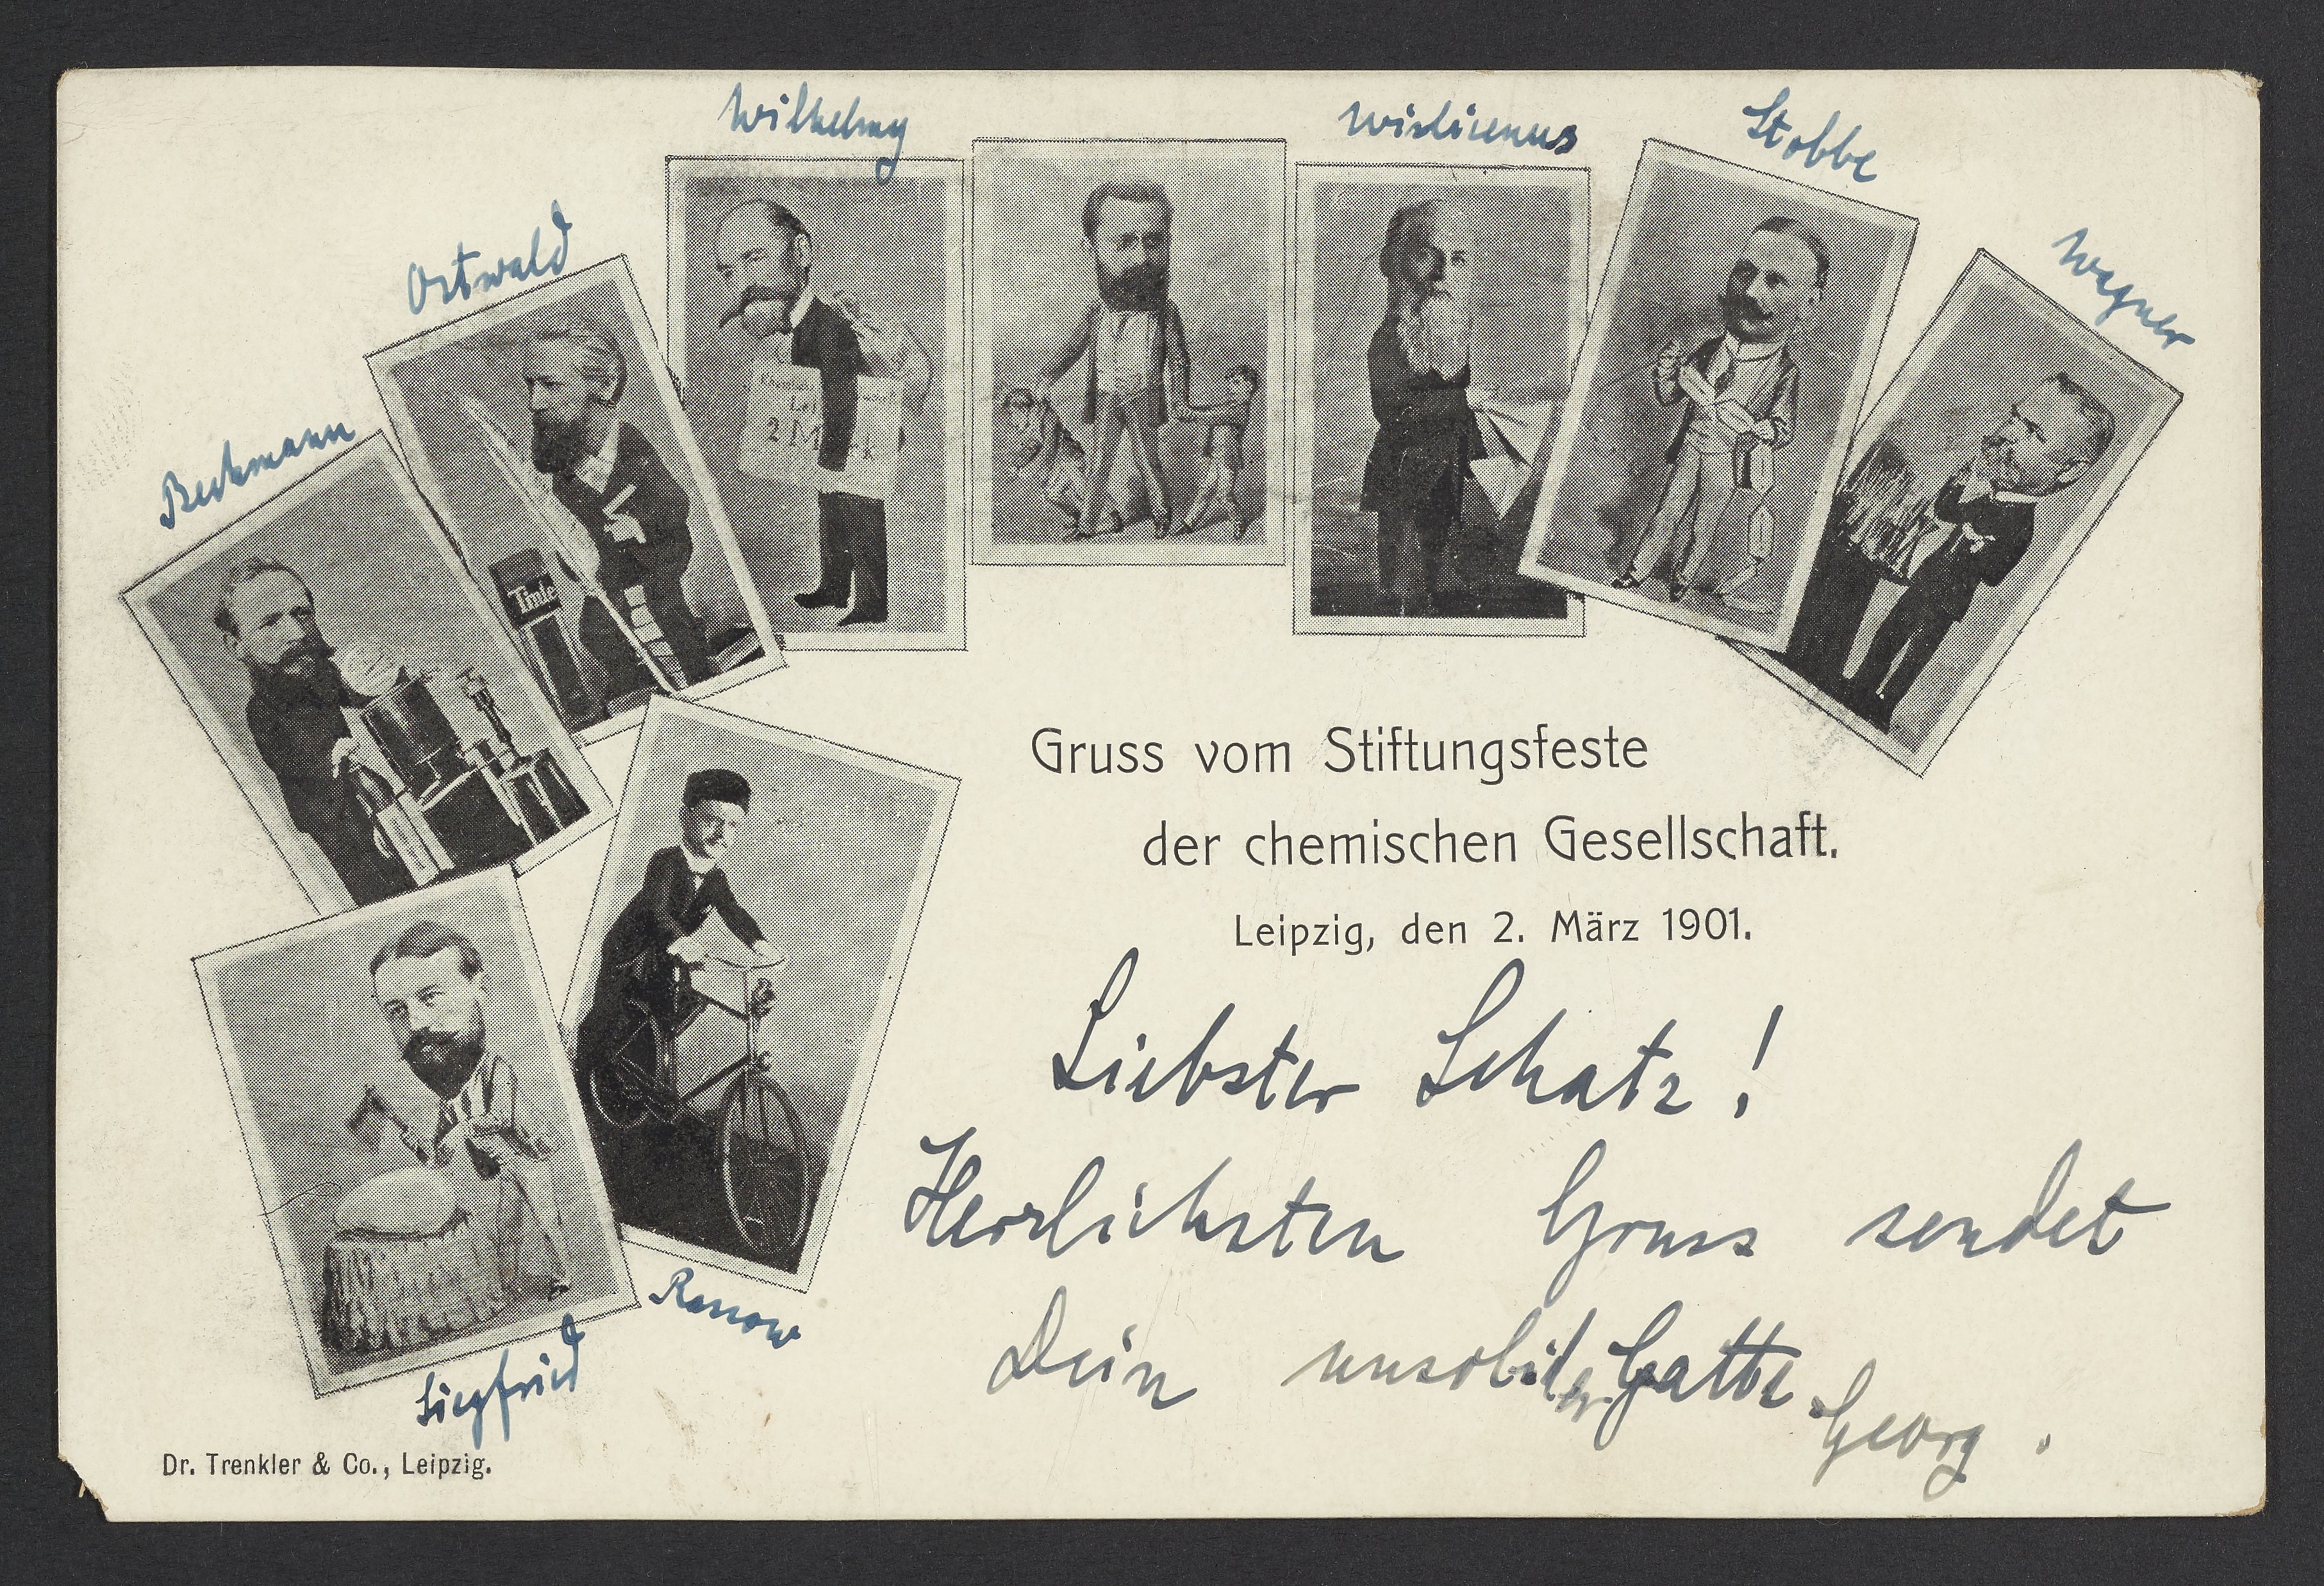 Wilhelmy
Wislicenus
Stobbe
Wagner
Ostwald
Beckmann
2 M k
Tinte
Gruss vom Stiftungsfeste
der chemischen Gesellschaft.
Leipzig, den 2. März 1901.
Liebster Schatz!
Herrlichsten Gruss sendet
Dein unsolider Gatte
Georg.
Rassow
Siegfried
Dr. Trenkler & Co., Leipzig.